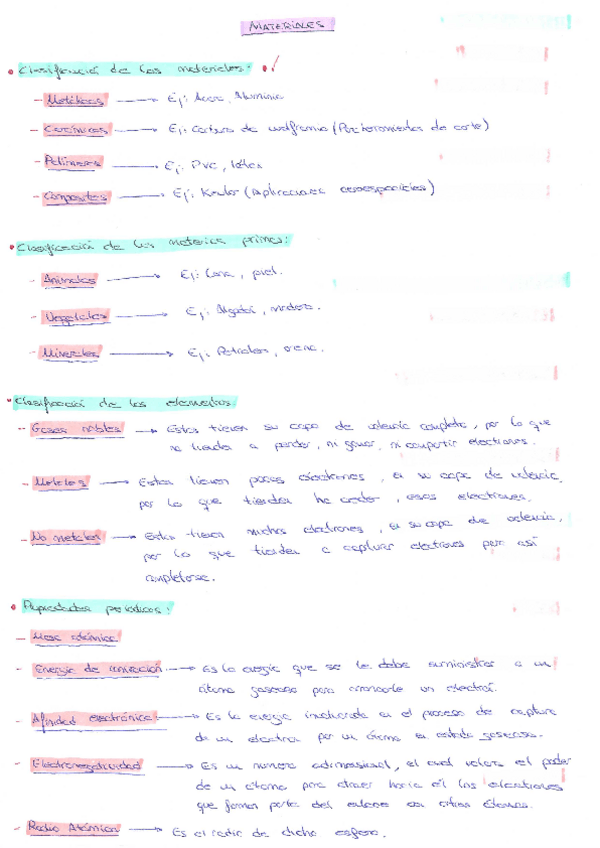 MATERIALES
• Clasificación de los materiales:
- Metálicos → Ej: Acero, Aluminio
- Cerámicos → Ej: Carburo de wolframio (Para herramientas de corte)
- Polímeros → Ej: PVC, látex
- Composites → Ej: Kevlar (Aplicaciones aeroespaciales)
• Clasificación de las materias primas:
- Animales → Ej: Lana, piel.
- Vegetales → Ej: Algodón, madera.
- Minerales → Ej: Petróleo, arena.
• Clasificación de los elementos
- Gases nobles → Estos tienen su capa de valencia completa, por lo que
no tienden a perder, ni ganar, ni compartir electrones.
- Metales → Estos tienen pocos electrones, en su capa de valencia,
por lo que tienden ha ceder, esos electrones.
- No metales → Estos tienen muchos electrones, en su capa de valencia,
por lo que tienden a capturar electrones para así
completarse.
• Propiedades periódicas:
- Masa atómica
- Energía de ionización → Es la energía que se le debe suministrar a un
átomo gaseoso para arrancarle un electrón.
- Afinidad electrónica → Es la energía involucrada en el proceso de captura
de un electrón por un átomo en estado gaseoso.
- Electronegatividad → Es un número adimensional, el cual valora el poder
de un átomo para atraer hacia él los electrones
que forman parte del enlace con otros átomos.
- Radio Atómico → Es el radio de dicha esfera.